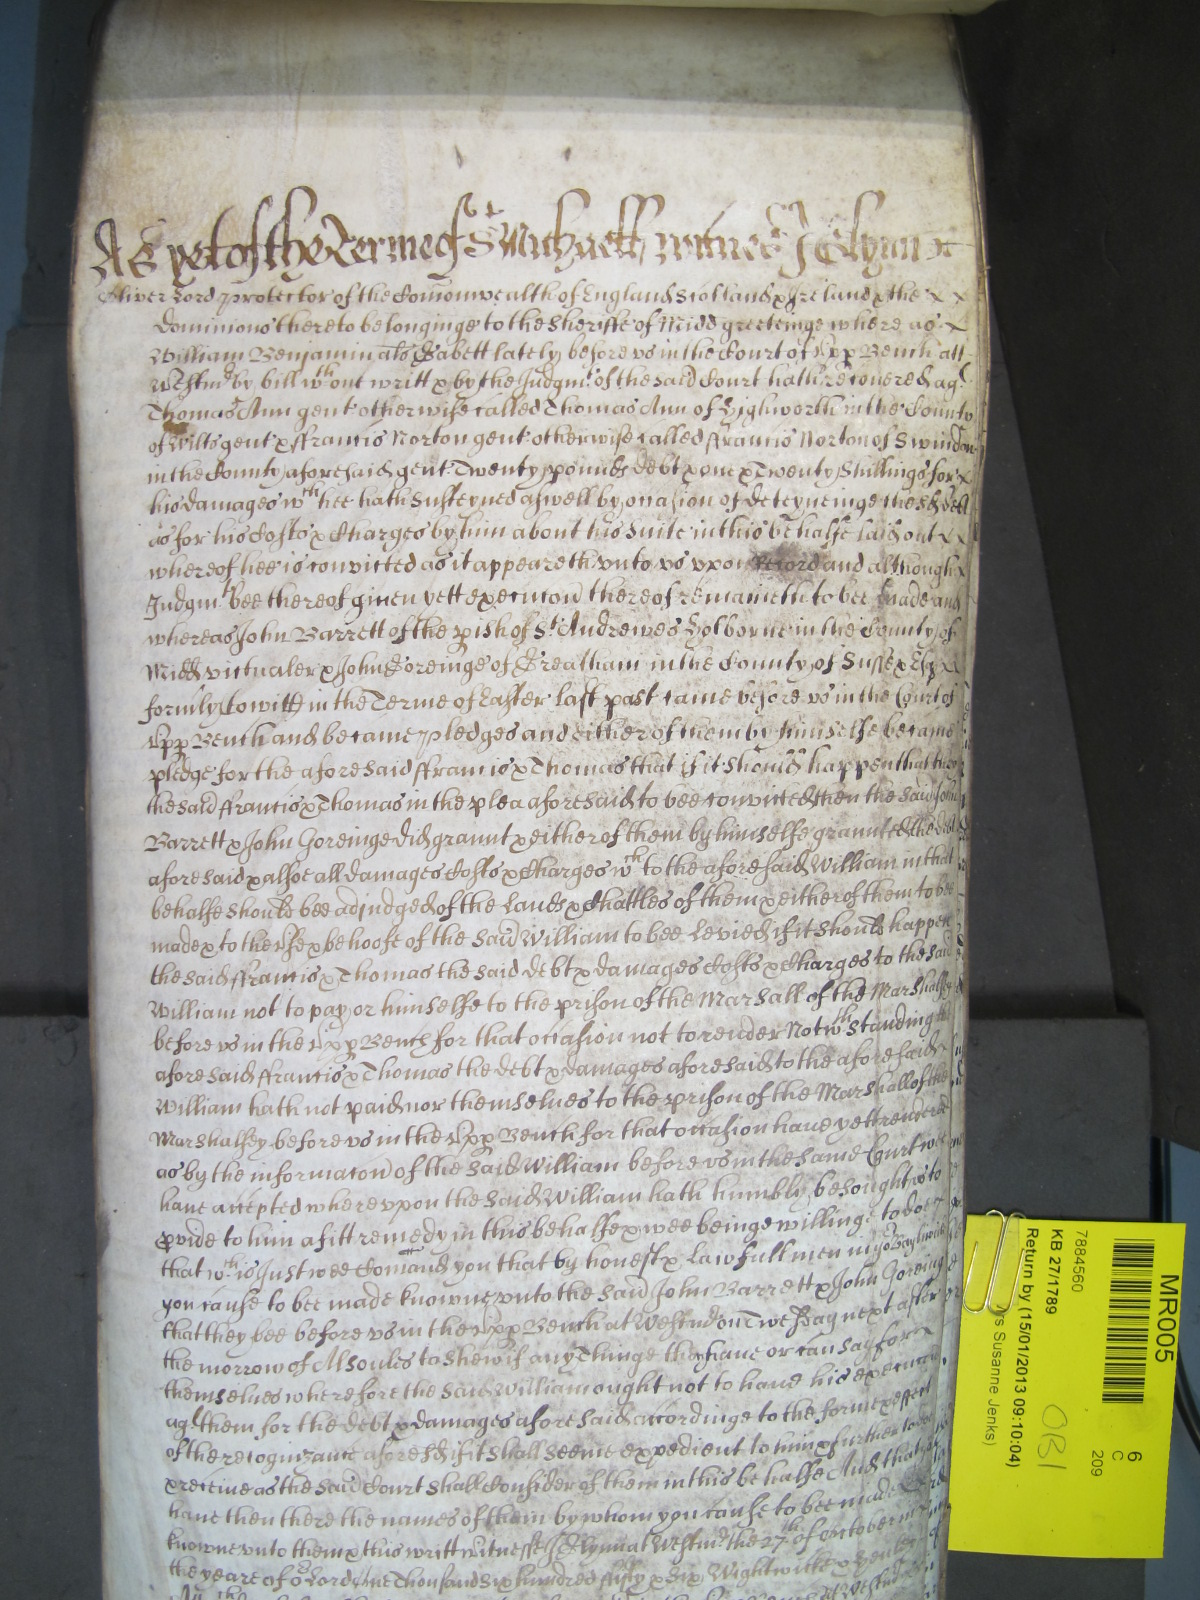 As yet of the Terme of St Michaell witnes J Glynn
Oliver Lord protector of the Comonwealth of England Scotland & Ireland & the
dominions thereto belonginge to the Sheriffe of Midd greeteinge where as
William Benjamin als Gabett lately before vs in the Court of Vpp Bench att
Westm by bill wthout writt & by the Judgmt of the said Court hath recouered agt
Thomas Ann gent otherwise called Thomas Ann of Highworth in the County
of Wilts gent & ffrancis Norton gent otherwise called ffrancis Norton of Swindon
in the County aforesaid gent Twenty pounds debt & one & Twenty Shillings for
his damages wch hee hath Susteyned aswell by occasion of deteyneinge the sd debt
as for his Costs & Charges by him about his Suite in this behalfe laid out
whereof hee is convicted as it appeareth vnto vs vpon Record and although
Judgmt bee thereof given yett execucon thereof remaineth to bee made and
whereas John Barrett of the pish of St Andrewes Holborne in the County of
Midd victualer & John Goreinge of Greatham in the County of Sussex Esq
formly (to witt) in the Terme of Easter last past came before vs in the Court of
Vpp Bench and became pledges and either of them by himselfe became
pledge for the aforesaid ffrancis & Thomas that if it should happen that
the said ffrancis & Thomas in the plea aforesaid to bee convicted then the said John
Barrett & John Goreinge did graunt & either of them by himselfe graunted the debt
aforesaid & alsoe all damages Costs & Charges wch to the aforesaid William in that
behalfe should bee adjudged of the Lands & Chattles of them & either of them to bee
made & to the vse & behoofe of the said William to bee Levied if it should happen
the said ffrancis & Thomas the said debt & damages Costs & Charges to the said
William not to pay or himselfe to the prison of the Marshall of the Marshalsey
before vs in the Vpp Bench for that occasion not to render Notwthstanding the
aforesaid ffrancis & Thomas the debt & damages aforesaid to the aforesaid
William hath not paid nor themselues to the prison of the Marshall of the
Marshalsey before vs in the Vpp Bench for that occasion haue yett rendered
as by the informacon of the said William before vs in the same Court wee
haue accepted wherevpon the said William hath humbly besought vs to
pvide to him a fitt remedy in this behalfe & wee beinge willinge to doe
that wch is Just wee Comand you that by honest & Lawfull men in yor Baylywick
you cause to bee made knowne vnto the said John Barrett & John Goreinge
that they bee before vs in the Vpp Bench at Westm on Twesday next after
the morrow of All soules to shew if any Thinge they haue or can say for
themselues wherefore the said William ought not to haue his execucon
agt them for the debt & damages aforesaid accordinge to the forme & effect
of the recognizance aforesd if it shall seeme expedient to him & further to doe
& receiue as the said Court shall Consider of them in this behalfe And that you
haue then there the names of them by whom you cause to bee made
knowne vnto them & this writt witnesse J Glynn at Westm the 27th of October in
the yeare of or Lord one Thousand six hundred fifty & six Wightwicke &
MR005
7884560
KB 27/1789
Return by (15/01/2013 09:10:04)
Susanne Jenks)
6
C
209
OB1